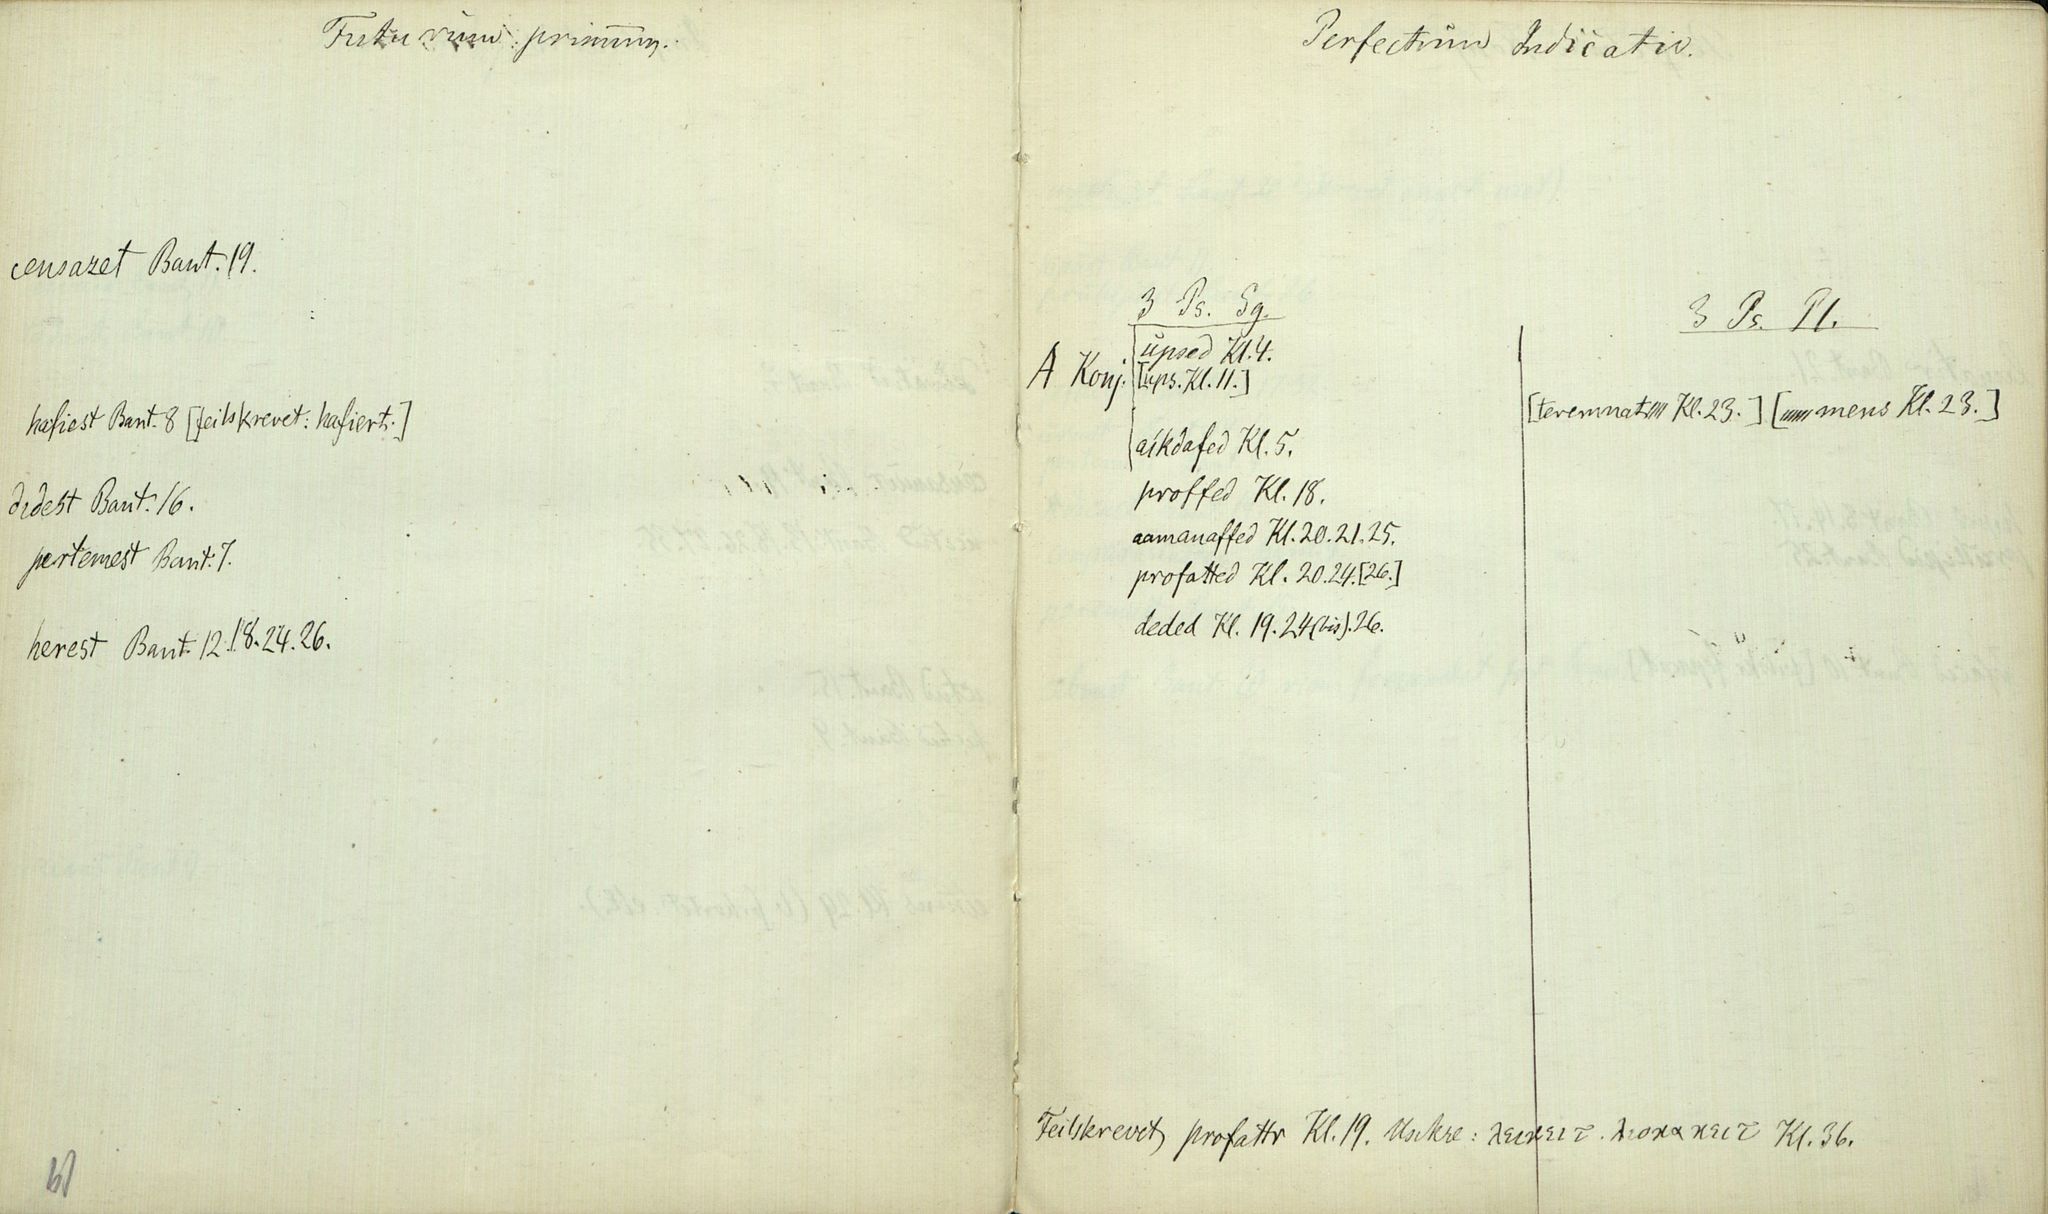 Futurum primum.
censazet Bant. 19.
hafiest Bant. 8 [feilskrevet: hafiert.]
didest Bant. 16.
pertemest Bant. 7.
herest Bant. 12. 18. 24. 26.
Perfectum Indicativ.
3 Ps. Sg.
3 Ps. Pl.
A Konj.
upsed Kl. 4.
[ups. Kl. 11.]
[teremnat Kl. 23.] [mens Kl. 23.]
aikdafed Kl. 5.
proffed Kl. 18.
aamanaffed Kl. 20. 21. 25.
profatted Kl. 20. 24. [26.]
deded Kl. 19. 24 (bis). 26.
Feilskrevet profattr Kl. 19. Usikre: λεικειτ. λιοκακειτ Kl. 36.